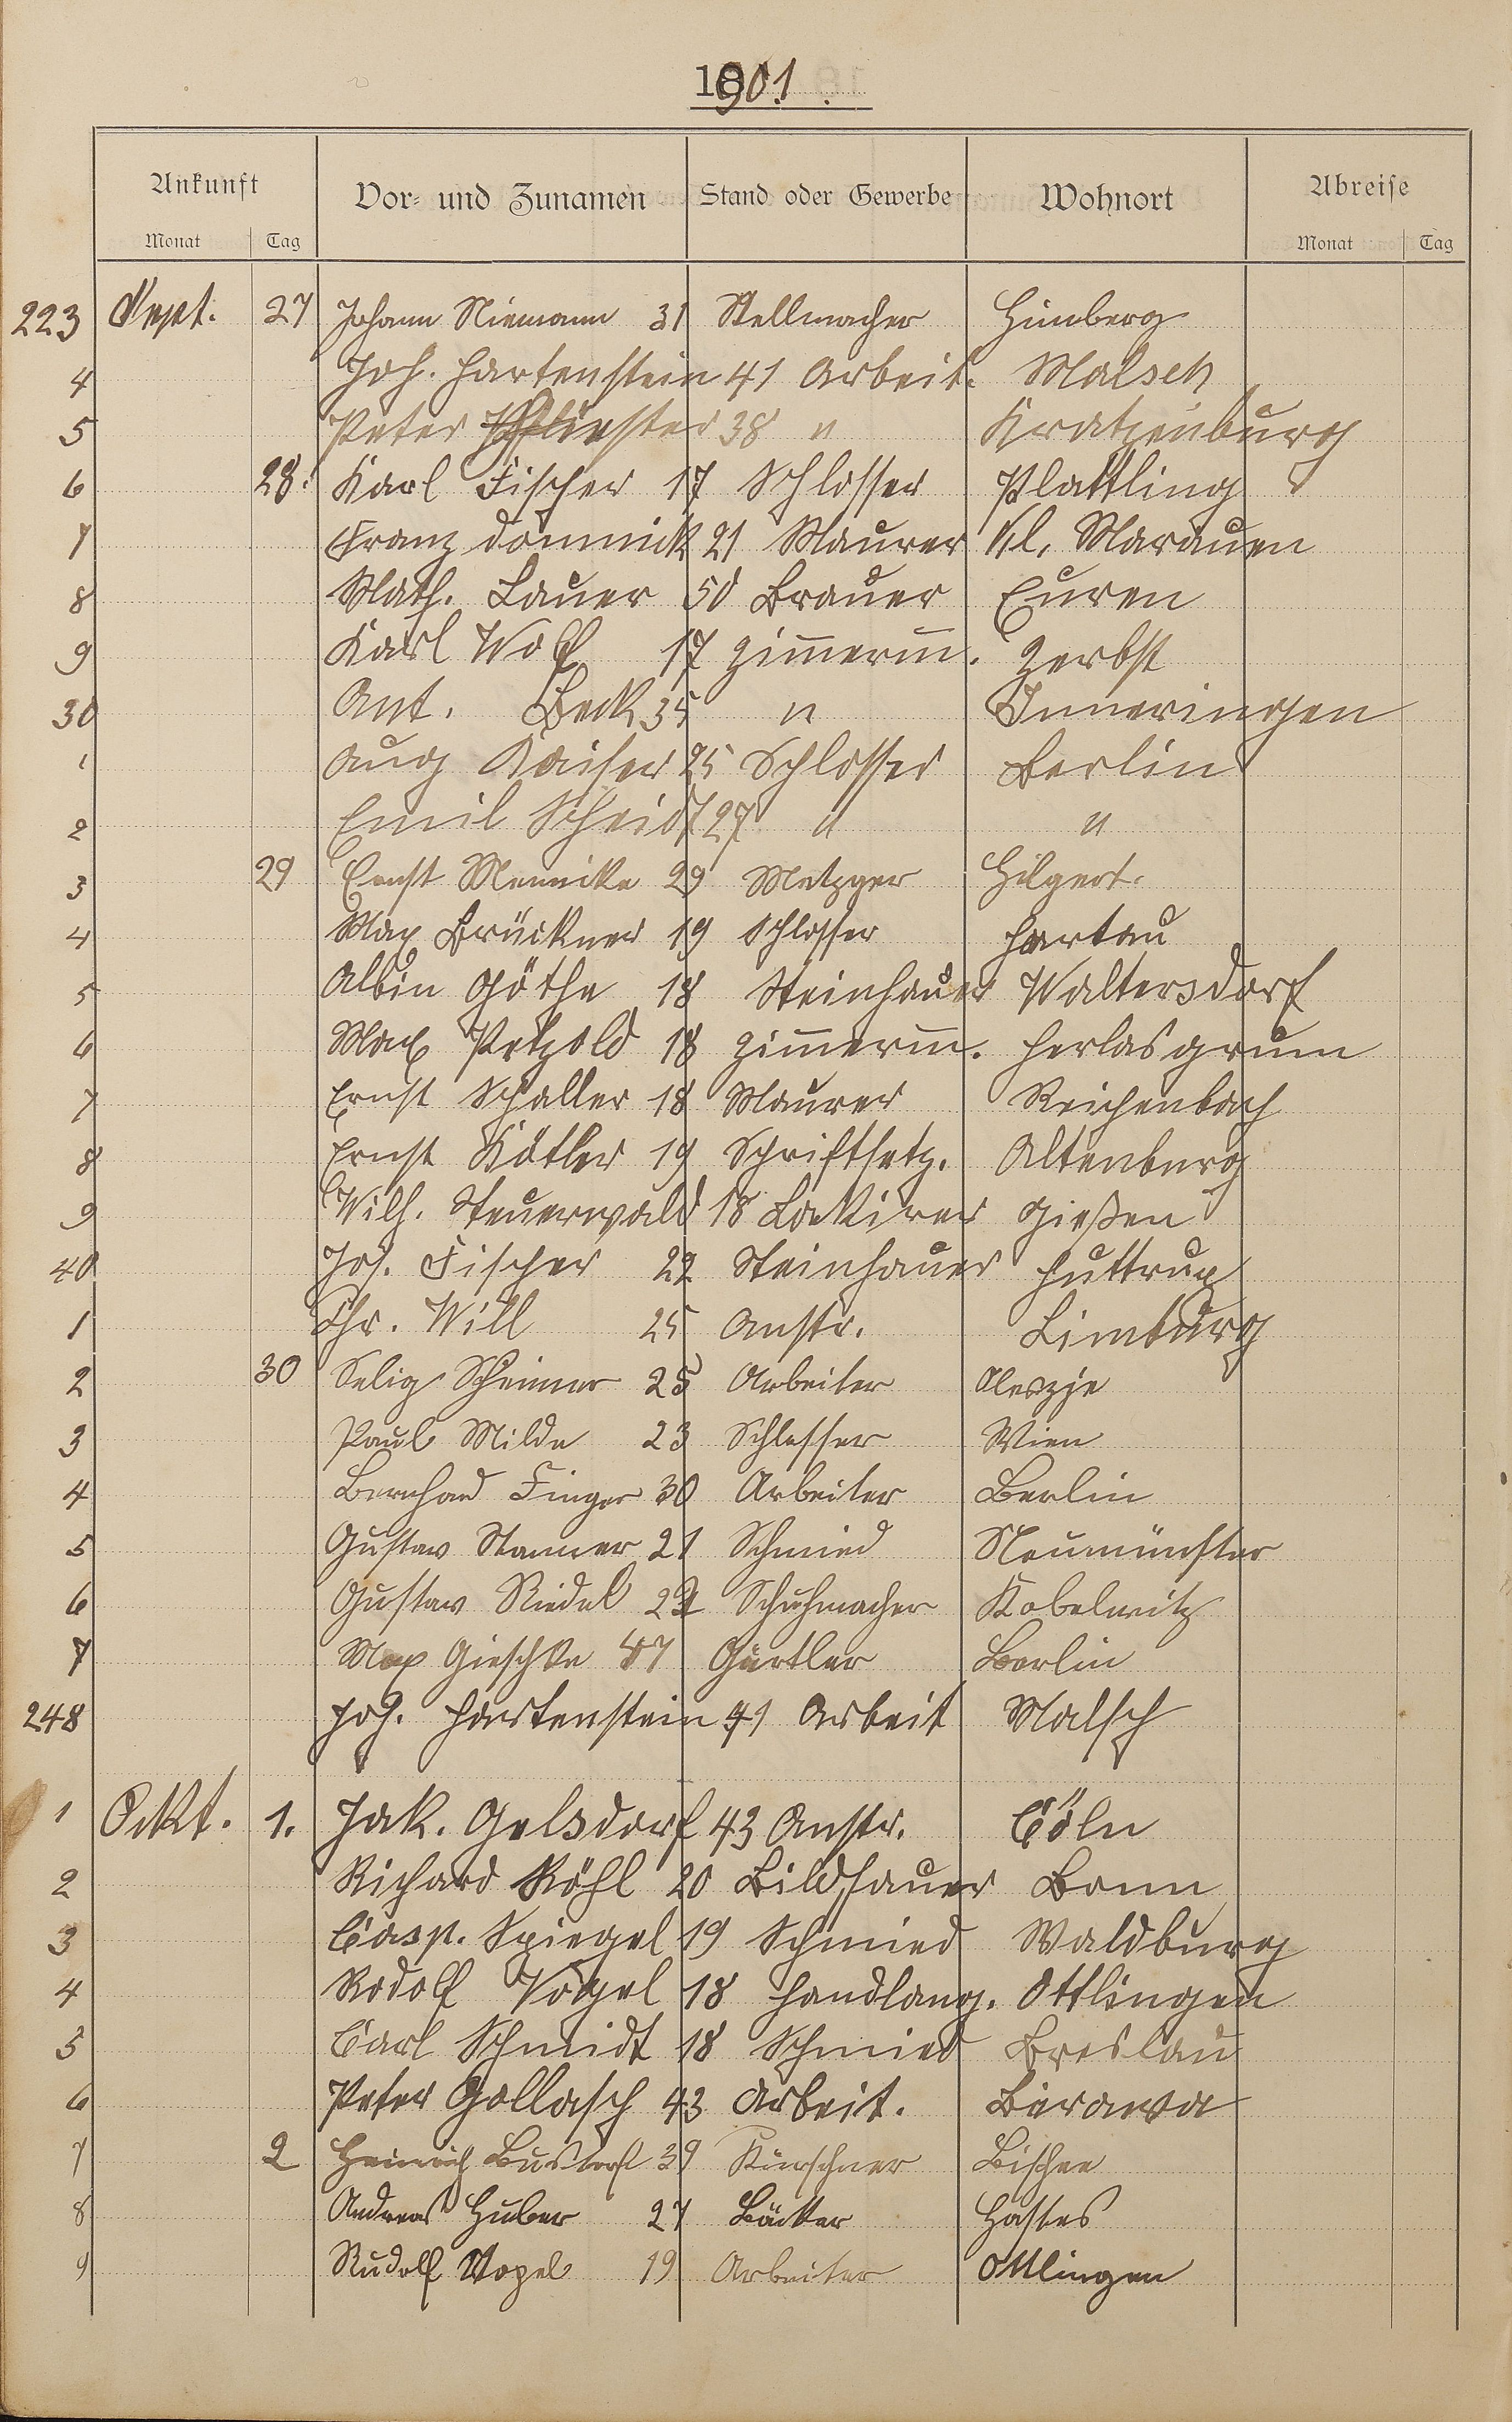 1901.
Ankunft Vor- und Zunamen Stand oder Gewerbe Wohnort Abreise
Monat Tag Monat Tag
223 Sept. 27 Johann Niemann 31 Stellmacher Himberg
4 Joh. Hartenstein 41 Arbeit. Malsch
5 Peter 38 " Kratzenburg
6 28. Karl Fischer 17 Schlosser Plattling
7 Franz Dominick 21 Maurer Kl. Marauen
8 Math. Lauer 50 Brauer Euren
9 Karl Wolf 17 Zimmerm. Zerbst
30 Ant. Beck 35 " Inneringen
1 Aug Kaiser 25 Schlosser Berlin
2 Emil Scheidt 27 " "
3 29 Ernst Mennike 29 Metzger Hilgert.
4 Max Brückner 19 Schlosser Hartau
5 Albin Göthe 18 Steinhauer Waltersdorf
6 Max Petzold 18 Zimmerm. Herlasgrum
7 Ernst Schaller 18 Maurer Reichenbach
8 Ernst Kötler 19 Schriftsetz. Altenburg
9 Wilh. Steuerwald 18 Lackirer Gießen
40 Jos. Fischer 22 Steinhauer Huttrup
1 Chr. Will 25 Anstr. Limburg
2 30 Selig Scheimer 25 Arbeiter Aleszje
3 Paul Milde 23 Schlosser Wien
4 Bernhard Finger 30 Arbeiter Berlin
5 Gustav Stamer 21 Schmied Neumünster
6 Gustav Riedel Schuhmacher Kobelwitz
7 Max Gieschke 47 Gürtler Berlin
248 Joh. Hartenstein 41 Arbeit Malsch
1 Ockt. 1. Jak. Gelsdorf 43 Anstr. Cöln
2 Richard Röhl 20 Bildhauer Bonn
3 Casp. Spiegel 19 Schmied Waldburg
4 Rodolf Vogel 18 Handlang. Ottlingen
5 Carl Schmidt 18 Schmied Breslau
6 Peter Gollasch 43 Arbeit. Birawa
7 2 Heinrich Bustorf 39 Kürschner Bischee
8 Andreas Huber 27 Bäcker Hostes
9 Rudolf Vogel 19 Arbeiter Ottlingen